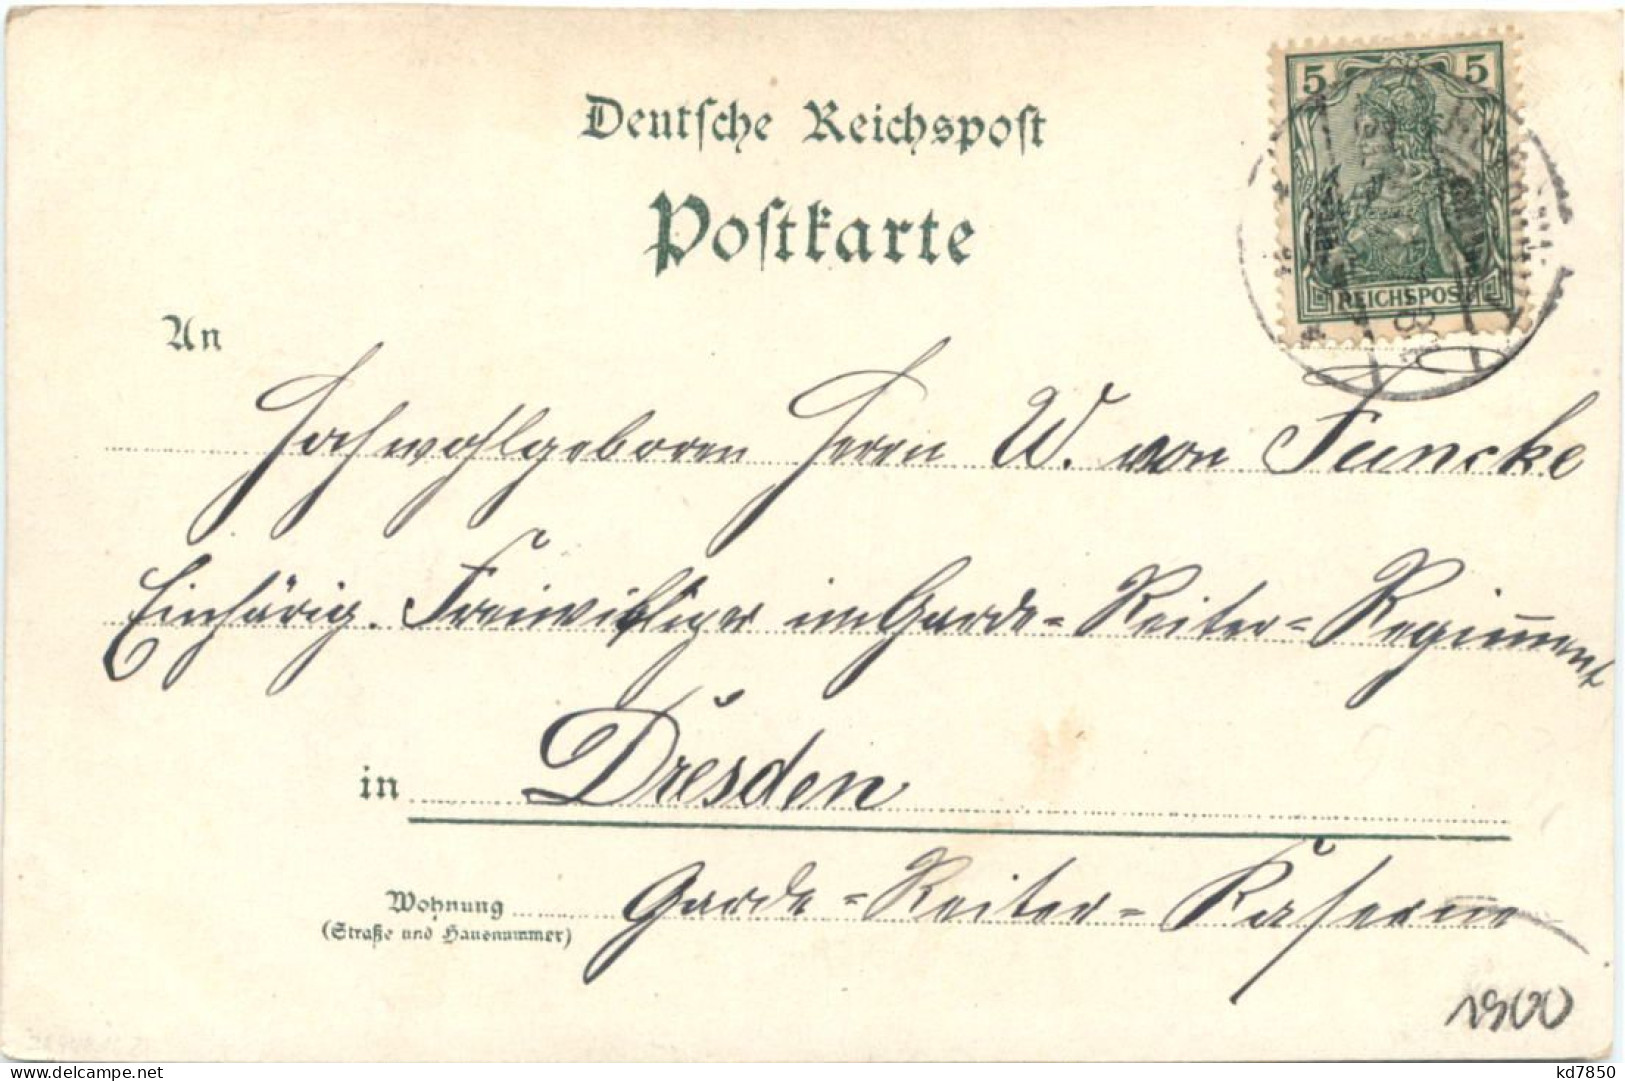 5 5
REICHSPOST
Deutsche Reichspost
Postkarte
An
Hochwohlgeboren Herrn W. von Funcke
Einjährig. Freiwilliger im Garde-Reiter-Regiment
in Dresden
Wohnung Garde-Reiter-Kaserne
(Straße und Hausnummer)
1900
delcampe.net
kd7850